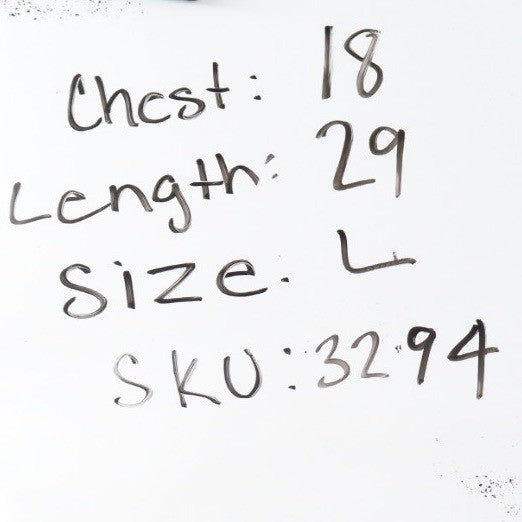 Chest: 18
Length: 29
Size. L
SKU: 3294